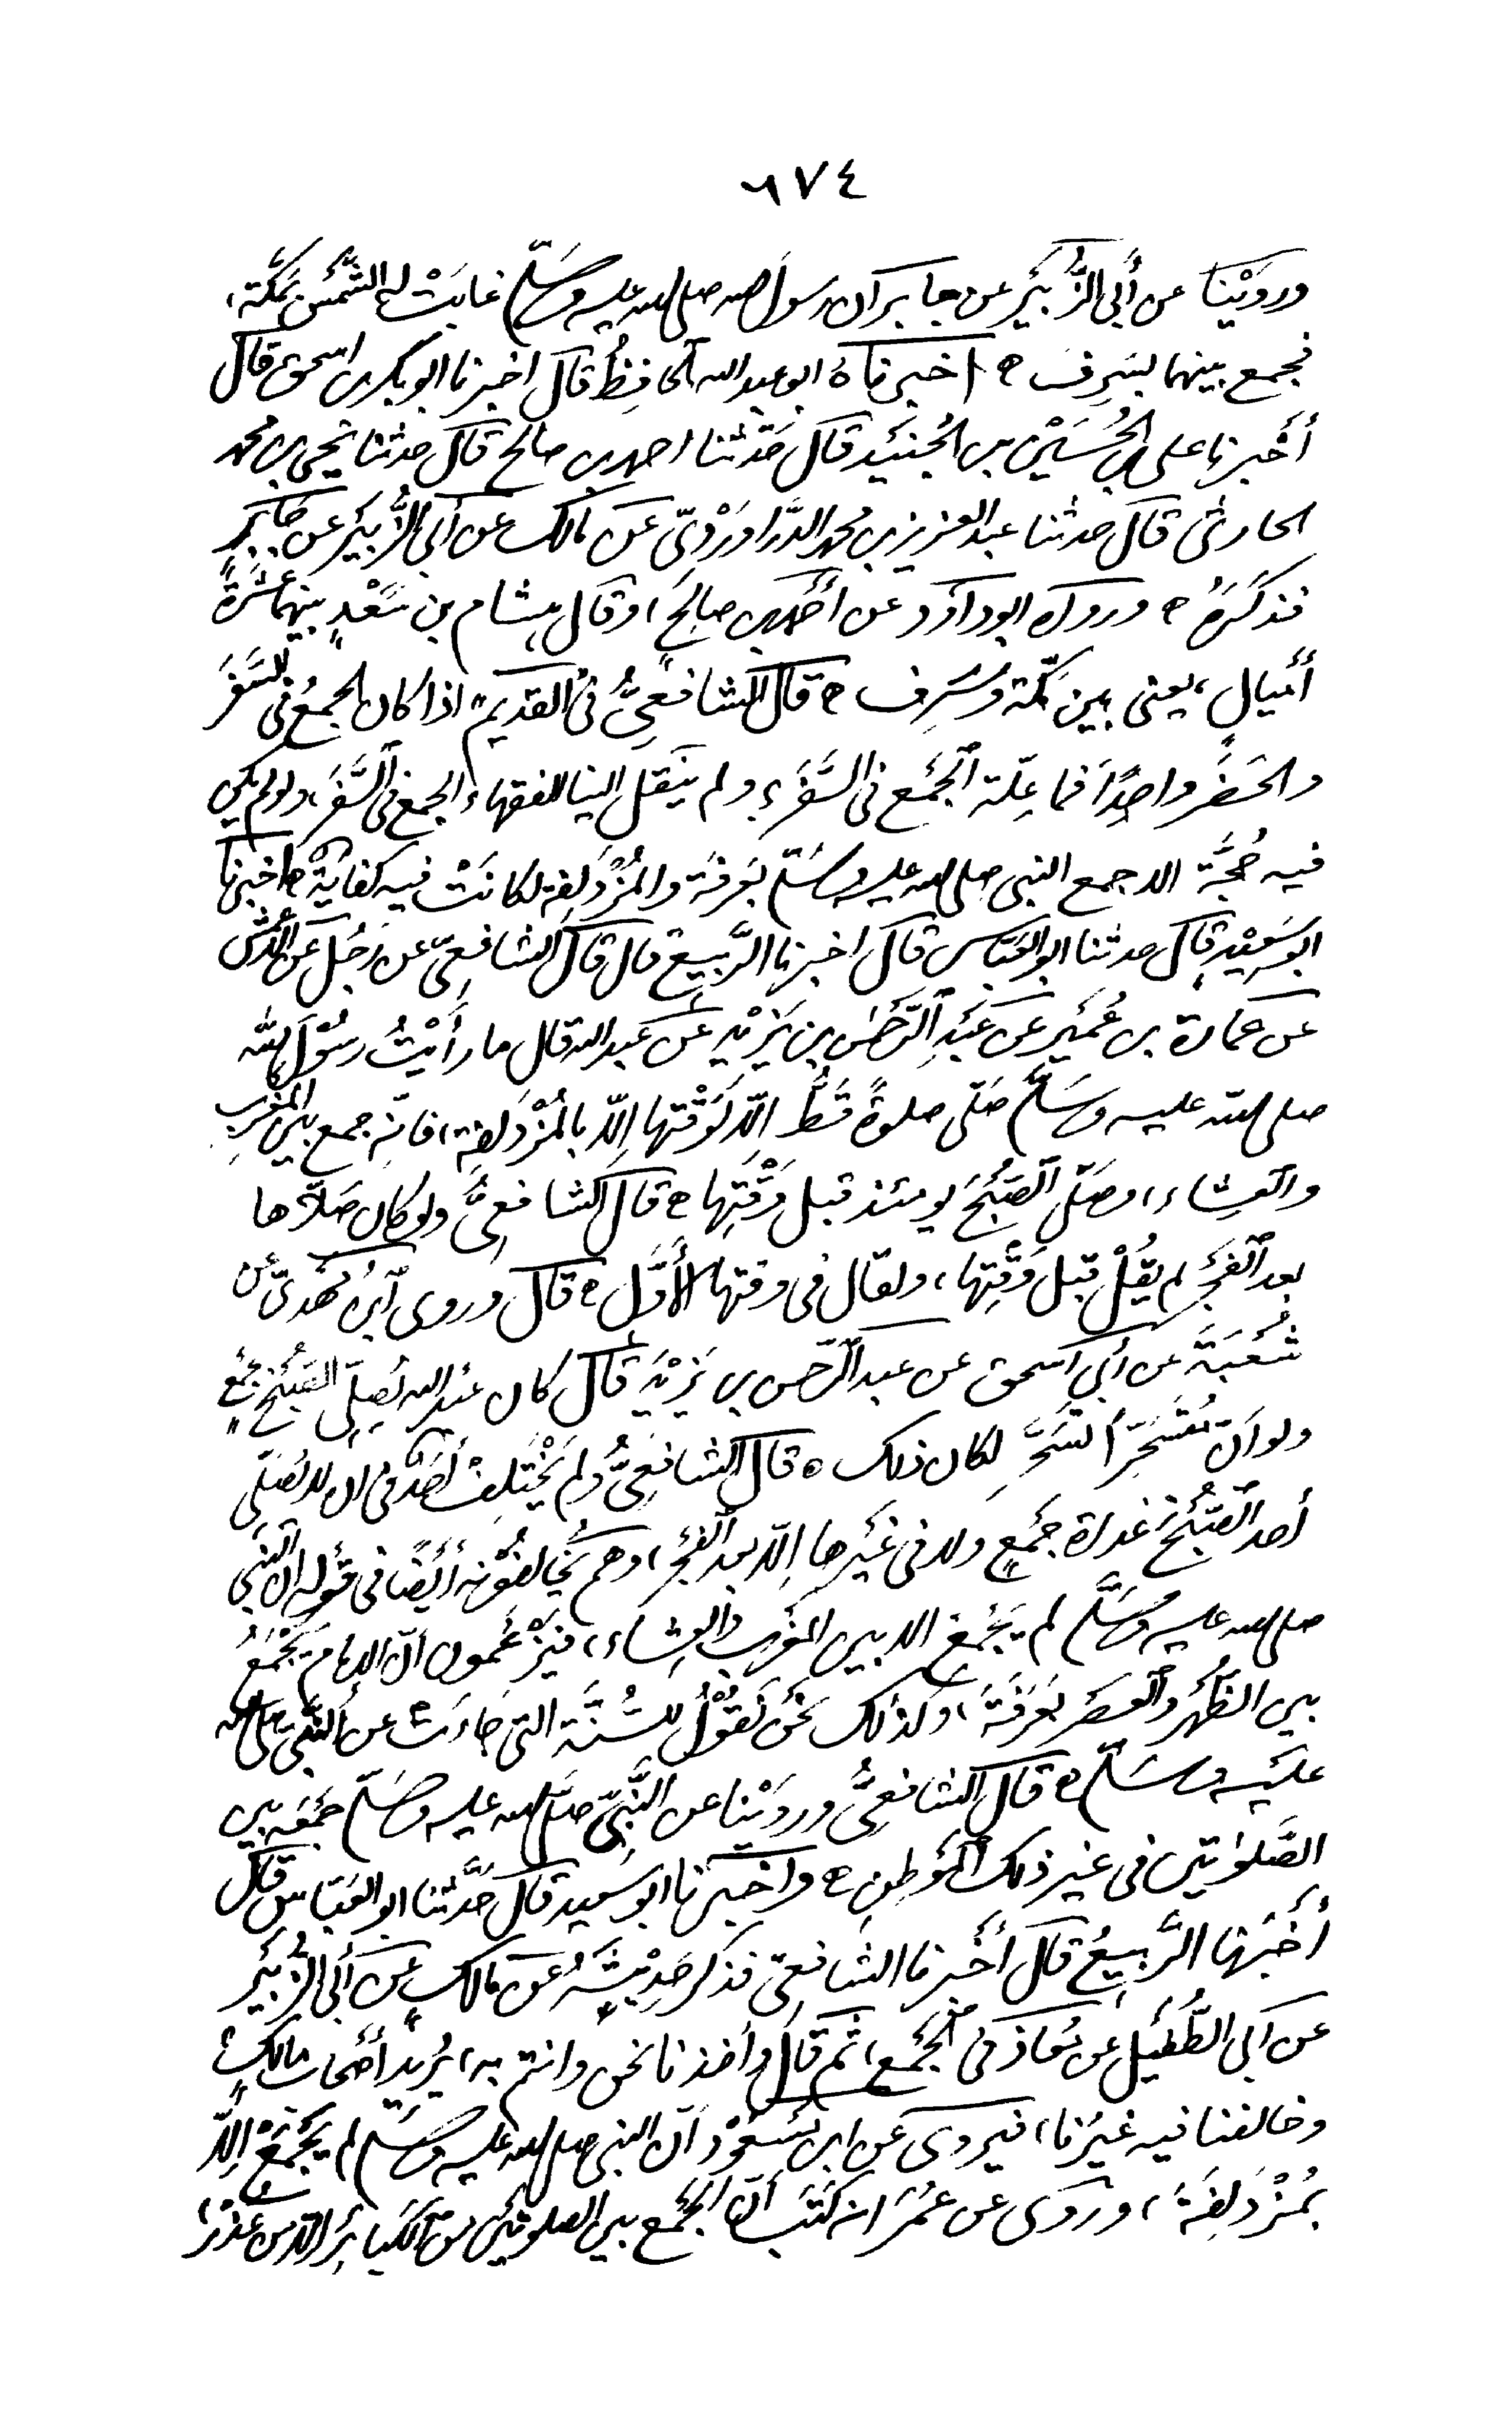 ٦٧٤
وروَيْنا عن أبى الزُّبَيْر عن جابر ان رسولَ الله صلى الله عليه وسَلّم غابَتْ له الشَّمْس بمَكّة،
فجمع بينهما بسَرِفَ ه اخبرناهُ ابو عبد الله الحَافِظُ قال اخبرنا ابو بكر بن اسحق قال
أَخْبرنا على بن الحُسَيْن بن الجُنَيْد قال حَدَّثنا احمد بن صالح قال حدثنا يَحْيى بن محمد
الحارثى قال حدثنا عبد العزيز بن محمد الدَّراوَرْدِىّ عن مالك عن أبى الزُّبيْر عن جَابِرٍ
فذكَرَهُ ه ورواه ابو داوُد عن أَحْمد بن صالحٍ، وقال هِشام بن سَعْدٍ بينهما عَشَرَةُ
أَمْيالٍ، يعنى بين مَكّة وسَرِف ه قال الشافعِىُّ فى القديم اذا كان الجمعُ فى السَّفَرِ
والحَضَر واحِدًا فما عِلّة الجَمْع فى السَّفَر، ولم يَنْقل الينا الفقهاء الجمع فى السَّفَر، ولو لم يكن
فيه حُجَّة الا جمع النبى صلى الله عليه وسَلّم بعَرفَة والمُزْدَلِفة لكانَتْ فيه كفايةٌ ه اخبرنا
ابو سَعِيْد قال حدثنا ابو العَبّاس قال اخبرنا الرَّبيع قال قال الشافعِىّ عن رَجُل عن الأَعْمش
عن عمارة بن عُمَيْر عن عَبْدِ الرَّحْمٰن بن يَزِيْد عن عبد الله قال ما رأَيْتُ رسُوْلَ الله
صلى الله عليه وسَلَّم صَلّى صلوةً قَطُّ إلّا لوَقْتها إلّا بالمُزْدَلِفة، فانّه جمع بين المغرب
والعِشاء، وصَلّى الصُّبْحَ يومئذ قبل وَقْتِها ه قال الشافعِىُّ ولو كان صَلّاها
بعد الفَجْر لم يَقُلْ قبل وَقْتِها، ولقال فى وقتها الأَوَّلِ ه قال وروى ابْنُ مَهْدىّ عن
شُعْبَةَ عن أبى اسحق عن عبد الرّحمن بن يَزِيْدَ قال كان عبد الله يُصلِّى الصُّبْحَ بجَمْعٍ
ولو أنّ مُتَسَحِّراً تسَحَّر لكان ذلك ه قال الشافعِىُّ ولم يَخْتَلِفْ أَحَدٌ فى ان لا يُصَلّى
أحد الصُّبْحَ غداةَ جَمْعٍ ولا فى غَيْرها إلّا بعد الفَجْر، وهم يُخالِفُوْنه أَيْضًا فى قَوْله ان النَّبىّ
صلى الله عليه وسَلَّم لم يَجْمَعْ الا بين المَغْرب والعِشاء، فيَزْعُمون أنّ الامام يَجْمَعُ
بين الظُّهْر والعَصْر بعَرَفَةَ، وكذلك نحْن نَقُوْلُ للسُّنَّة التى جَاءَت عن النَّبىّ صلى الله
عليْه وسلّم ه قال الشافعِىُّ وروَيْنا عن النَّبِىّ صَلَّى الله عليه وسَلّم جَمْعَه بين
الصَّلوٰتين فى غير ذلك المَوْطِنِ ه واخْبَرنا ابو سَعِيد قال حَدَّثنا ابو العَبّاس قال
أَخْبَرنا الرَّبِيعُ قال أَخْبرنا الشافعِىّ فذكر حَدِيْثَهُ عن مالكٍ عن أبى الزُّبيْر
عن أبى الطُّفَيْل عن مُعاذ فى الجَمْع، ثم قال وأخذنا نحن وانتم به، يُريد أَصْحاب مالكٍ
وخالفنا فيه غيْرُنا، فيروى عن ابن مَسْعُوْد أنّ النبى صلى الله عليه وسَلم لم يَجْمَعْ الّا
بمُزْدَلِفَةَ، وروَى عن عُمَرَ انه كَتَبَ أنّ الجَمْع بين الصلوتَيْن من الكَبائِر الّا من عُذْرٍ،